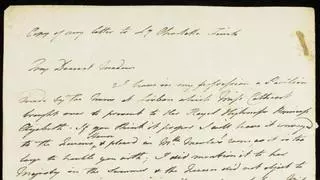 Copy of my letter to Ly Charlotte Finch
My Dearest Madam
I have in my possession a Pavilion
made by the Nuns at Lisbon which Miss Cathcart
brought over to present to the Royal Highness Princess
Elizabeth. If you think it proper I will have it conveyed
to the Queens House, & placed in Mrs room as it is too
large to trouble you with; I did mention it to her
Majesty in the Summer & the Queen did not object to